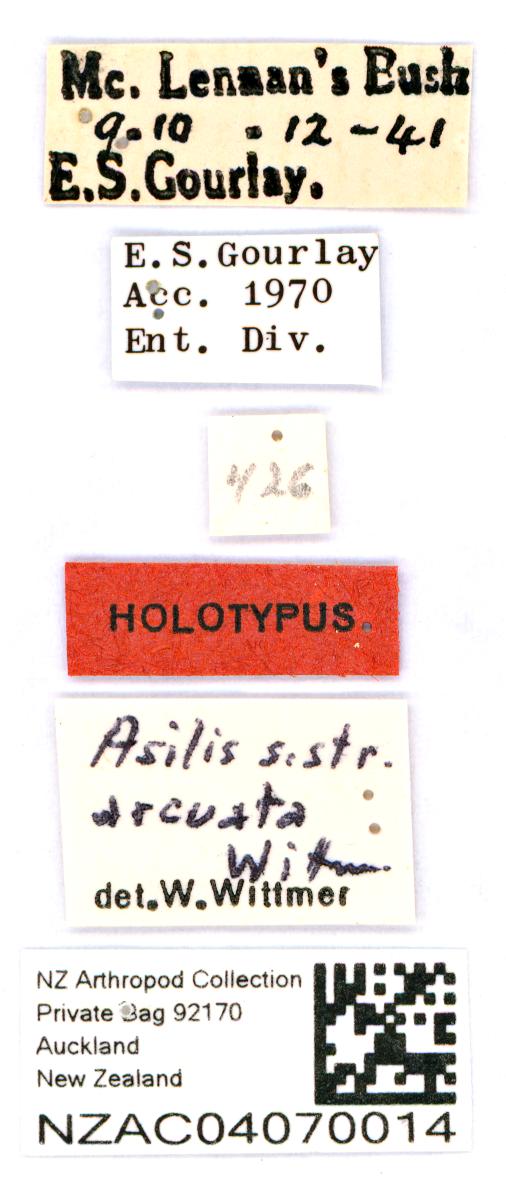 Mc. Lennan's Bush
9-10 - 12 - 41
E.S.Gourlay.
E.S.Gourlay
Acc. 1970
Ent. Div.
426
HOLOTYPUS
Asilis s.str.
arcuata
Wittm.
det.W.Wittmer
NZ Arthropod Collection
Private Bag 92170
Auckland
New Zealand
NZAC04070014